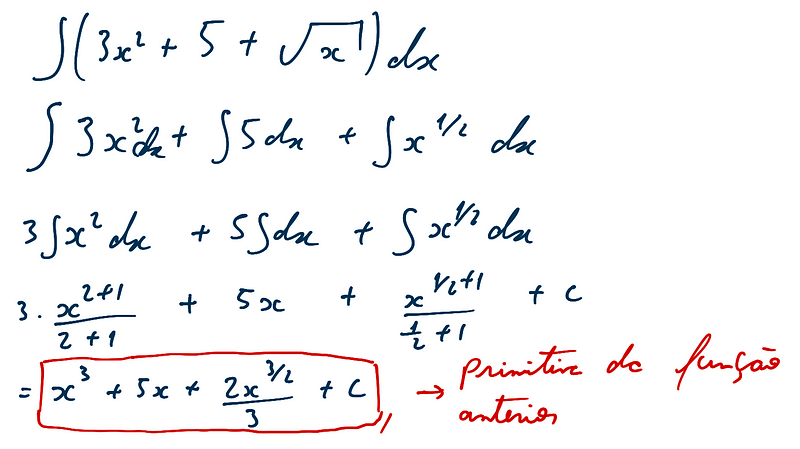 ∫(3x² + 5 + √x) dx
∫3x²dx + ∫5dx + ∫x^{1/2} dx
3∫x² dx + 5∫dx + ∫x^{1/2} dx
3 · x^{2+1}/(2+1) + 5x + x^{1/2+1}/(1/2+1) + C
= x³ + 5x + 2x^{3/2}/3 + C → primitiva da função
anterior